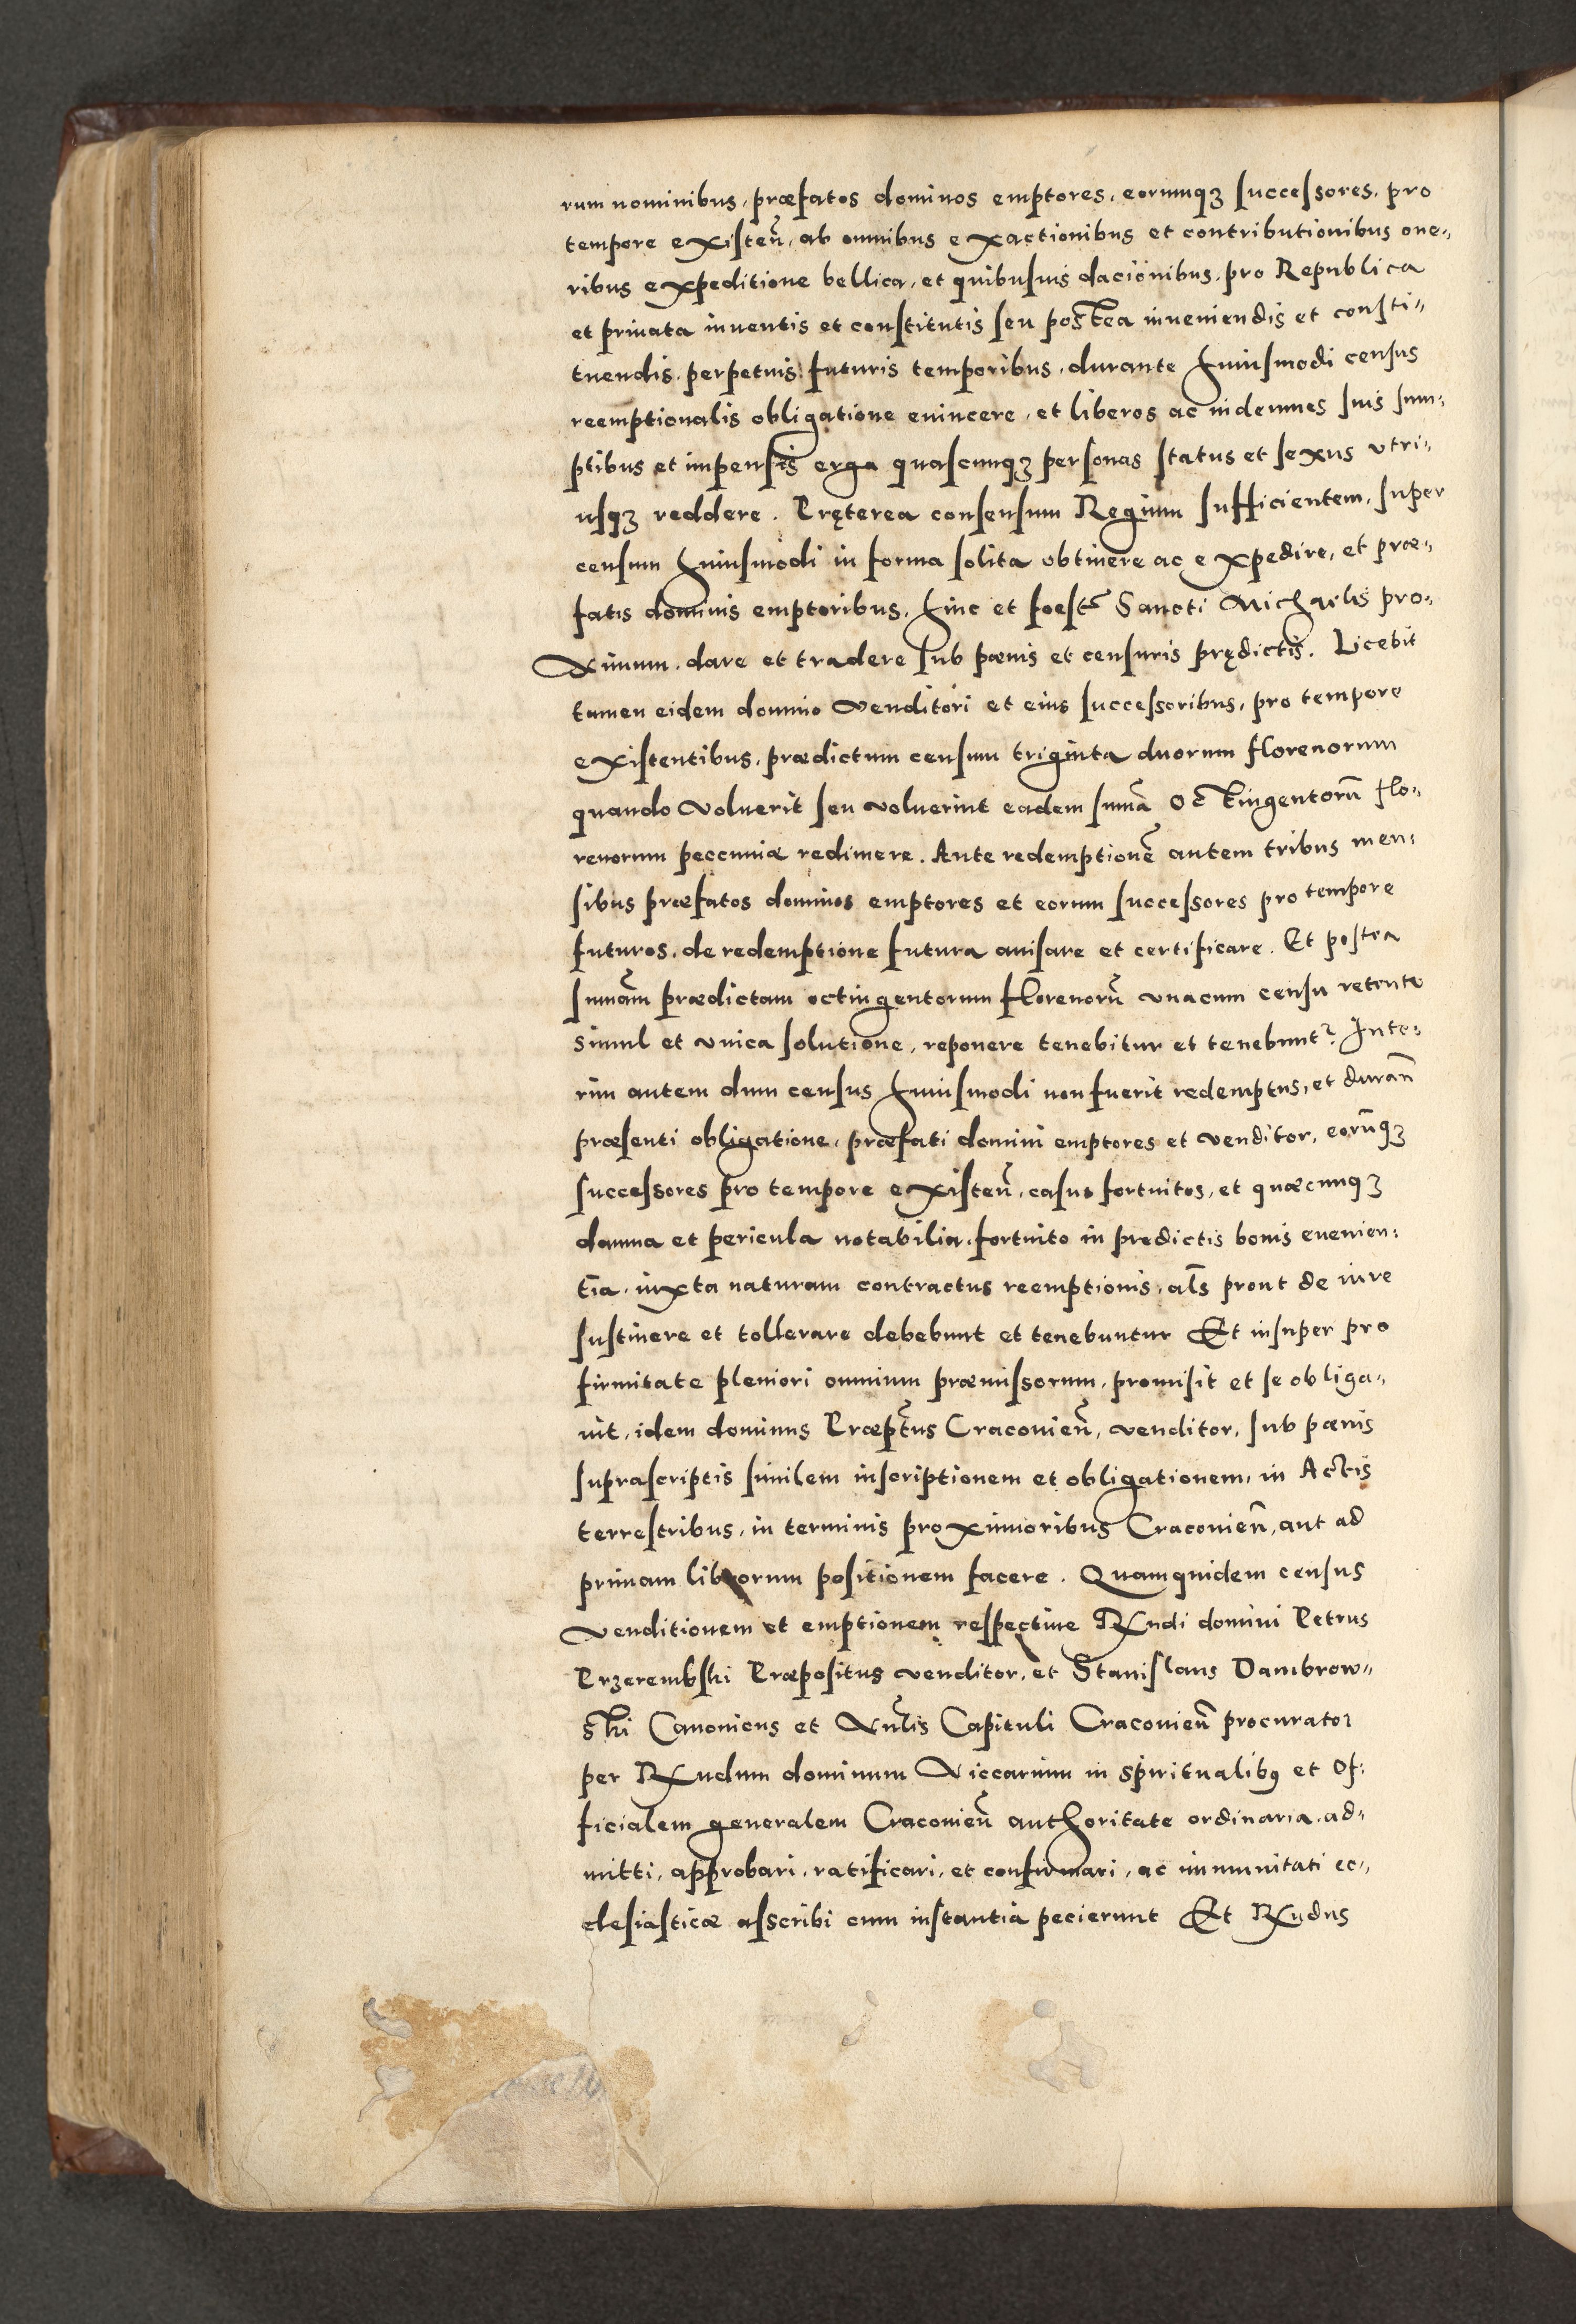 rum nominibus, præfatos dominos emptores, eorumqꝫ successores, pro
tempore existeñ, ab omnibus exactionibus et contributionibus one„
ribus expeditione bellica, et quibusuis dacionibus, pro Republica
et priuata inuentis et constitutis seu postea inueniendis et consti„
tuendis, perpetuis futuris temporibus, durante huiusmodi census
reemptionalis obligatione euincere, et liberos ac indemnes suis sum„
ptibus et impensis erga quascunqꝫ personas status et sexus vtri„
usqꝫ reddere. Pręterea consensum Regium sufficientem, super
censum huiusmodi in forma solita obtinere ac expedire, et præ„
fatis dominis emptoribus, hinc et foest̃ Sancti Michaelis pro„
ximum, dare et tradere sub pœnis et censuris prędictis. Licebit
tamen eidem domino venditori et eius successoribus, pro tempore
existentibus, prædictum censum triginta duorum florenorum
quando voluerit seu voluerint eadem sum̃a octingentorũ flo„
renorum peccuniæ redimere. Ante redemptionẽ autem tribus men„
sibus præfatos dominos emptores et eorum successores pro tempore
futuros, de redemptione futura auisare et certificare. Et postea
sum̃am prædictam octingentorum florenorũ vnacum censu retento
simul et vnica solutione, reponere tenebitur et tenebunt᷑. Inte„
rim autem dum census huiusmodi non fuerit redemptus, et durañ
præsenti obligatione, præfati domini emptores et venditor, eorũqꝫ
successores pro tempore existeñ, casus fortuitos, et quæcunqꝫ
damna et pericula notabilia, fortuito in predictis bonis euenien„
tia, iuxta naturam contractus reemptionis, al̃s prout de iure
sustinere et tollerare debebunt et tenebuntur Et insuper pro
firmitate pleniori omnium præmissorum, promisit et se obliga„
uit, idem dominus Præpt̃us Cracouieñ, venditor, sub pœnis
suprascriptis similem inscriptionem et obligationem, in Actis
terrestribus, in terminis proximioribus Cracouieñ, aut ad
primam librorum positionem facere. Quamquidem census
venditionem et emptionem respectiue Rx̃ndi domini Petrus
Przerembski Præpositus venditor, et Stanislaus Dambrow„
ski Canonicus et Vñlis Capituli Cracouieñ procurator
per Rx̃ndum dominum Viccarium in spiritualibꝯ et Of„
ficialem generalem Cracouieñ authoritate ordinaria, ad„
mitti, approbari, ratificari, et confirmari, ac immunitati ec„
clesiasticæ asscribi cum instantia pecierunt Et Rx̃ndus